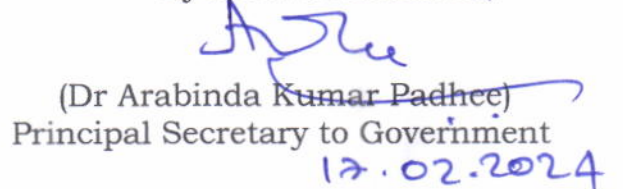 (Dr Arabinda Kumar Padhee)
Principal Secretary to Government
17.02.2024